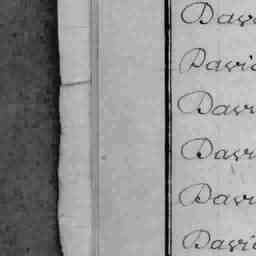 Davi
David
Davi
Davi
Davi
David